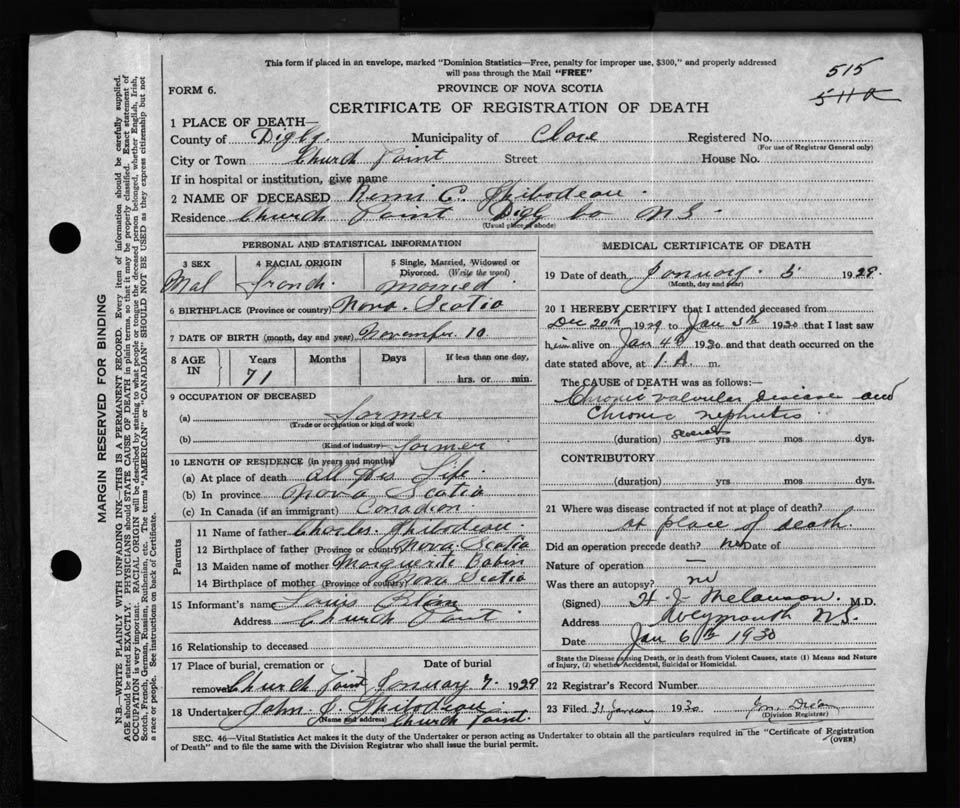 This form if placed in an envelope, marked "Dominion Statistics—Free, penalty for improper use, $300," and properly addressed
will pass through the Mail "FREE"
515
511a
FORM 6.
PROVINCE OF NOVA SCOTIA
CERTIFICATE OF REGISTRATION OF DEATH
1 PLACE OF DEATH—
County of Digby. Municipality of Clare Registered No.
(For use of Registrar General only)
City or Town Church Point Street House No.
If in hospital or institution, give name
2 NAME OF DECEASED Remi C. Thibodeau.
Residence Church Point Digg Co N.S.
(Usual place of abode)
PERSONAL AND STATISTICAL INFORMATION
3 SEX 4 RACIAL ORIGIN 5 Single, Married, Widowed or
Divorced. (Write the word)
Mal French. married
6 BIRTHPLACE (Province or country) Nova. Scotia
7 DATE OF BIRTH (month, day and year) November 10
8 AGE IN Years Months Days If less than one day,
71 hrs. or min.
9 OCCUPATION OF DECEASED
(a) farmer
(Trade or occupation or kind of work)
(b) farmer
(Kind of industry)
10 LENGTH OF RESIDENCE (in years and months)
(a) At place of death all his Life.
(b) In province Nova Scotia
(c) In Canada (if an immigrant) Canadien.
Parents
11 Name of father Charles. Thibodeau.
12 Birthplace of father (Province or country) Nova. Scotia
13 Maiden name of mother Marguerite Babin
14 Birthplace of mother (Province or country) Nova Scotia
15 Informant's name Louis
Address Church Point.
16 Relationship to deceased
17 Place of burial, cremation or Date of burial
removal Church Point January 7. 1929
18 Undertaker John. C. Thibodeau
(Name and address) Church Point.
MEDICAL CERTIFICATE OF DEATH
19 Date of death January. 5 1929.
(Month, day and year)
20 I HEREBY CERTIFY that I attended deceased from
Dec 20th 1929 to Jan 5th 1930 that I last saw
him alive on Jan 4th 1930 and that death occurred on the
date stated above, at 1. A. m.
The CAUSE OF DEATH was as follows:
Chronic valvular disease and
Chronic nephritis
(duration) Several yrs mos dys.
CONTRIBUTORY
(duration) yrs mos dys.
21 Where was disease contracted if not at place of death?
at place of death.
Did an operation precede death? no Date of
Nature of operation —
Was there an autopsy? no
(Signed) H. J. Melanson. M.D.
Address Weymouth N.S.
Date Jan 6th 1930
State the Disease causing Death, or in death from Violent Causes, state (1) Means and Nature
of Injury, (2) whether Accidental, Suicidal or Homicidal.
22 Registrar's Record Number
23 Filed 31 January 1930
(Division Registrar)
SEC. 46—Vital Statistics Act makes it the duty of the Undertaker or person acting as Undertaker to obtain all the particulars required in the "Certificate of Registration
of Death" and to file the same with the Division Registrar who shall issue the burial permit. (OVER)
MARGIN RESERVED FOR BINDING
N.B.—WRITE PLAINLY WITH UNFADING INK—THIS IS A PERMANENT RECORD. Every item of information should be carefully supplied.
AGE should be stated EXACTLY. PHYSICIANS should STATE CAUSE OF DEATH in plain terms, so that it may be properly classified. Exact statement of
OCCUPATION is very important. RACIAL ORIGIN will be described by stating to what people or tongue the deceased person belonged, whether English, Irish,
Scotch, French, German, Russian, Ruthenian, etc. The terms "AMERICAN" or "CANADIAN" SHOULD NOT BE USED as they express citizenship but not
a race or people. See instructions on back of Certificate.